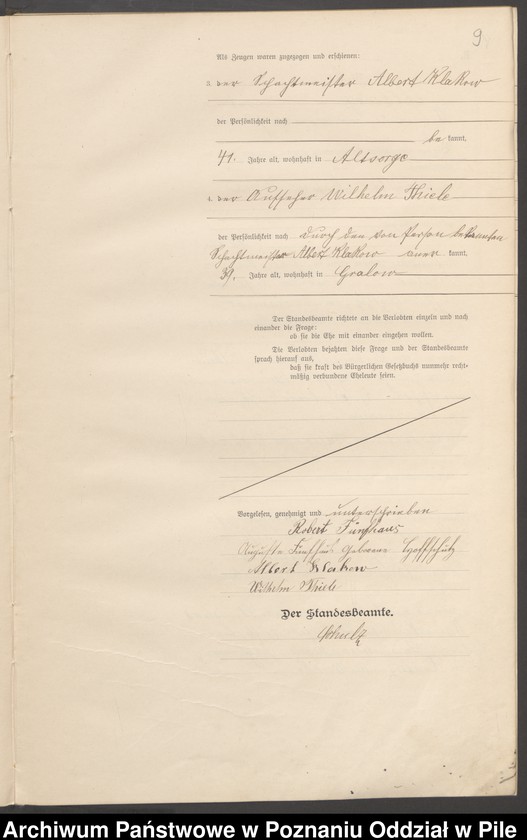 9
Als Zeugen waren zugezogen und erschienen:
3. der Schachtmeister Albert Klakow
der Persönlichkeit nach
be kannt,
41. Jahre alt, wohnhaft in Altsorge
4. der Aufseher Wilhelm Thiele
der Persönlichkeit nach durch den von Person bekannten
Schachtmeister Albert Klakow aner kannt,
31. Jahre alt, wohnhaft in Gralow
Der Standesbeamte richtete an die Verlobten einzeln und nach
einander die Frage:
ob sie die Ehe mit einander eingehen wollen.
Die Verlobten bejahten diese Frage und der Standesbeamte
sprach hierauf aus,
daß sie kraft des Bürgerlichen Gesetzbuchs nunmehr recht-
mäßig verbundene Eheleute seien.
Vorgelesen, genehmigt und unterschrieben
Robert Fünfhaus
Auguste geborene
Albert Klakow
Wilhelm Thiele
Der Standesbeamte.
Schulz
Archiwum Państwowe w Poznaniu Oddział w Pile